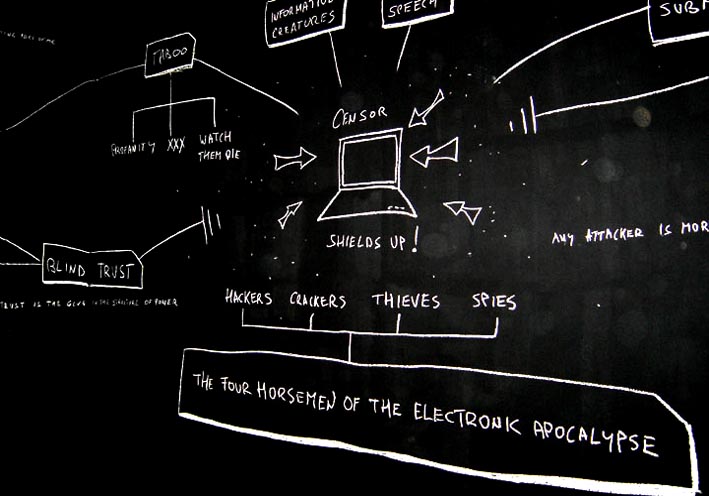 INFORMATIVE
CREATURES
SPEECH
SUBM
TABOO
CENSOR
PROFANITY
XXX
WATCH
THEM DIE
SHIELDS UP!
ANY ATTACKER IS MOR
BLIND TRUST
TRUST IS THE GLUE IN THE STRUCTURE OF POWER
HACKERS CRACKERS THIEVES SPIES
THE FOUR HORSEMEN OF THE ELECTRONIC APOCALYPSE